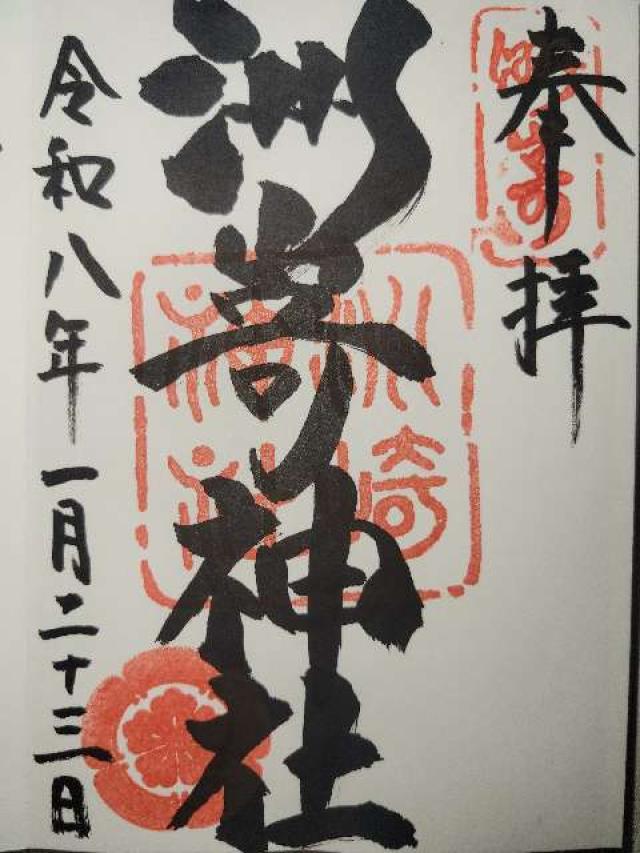 奉拝
洲嵜神社
令和八年一月二十三日
洲崎神社